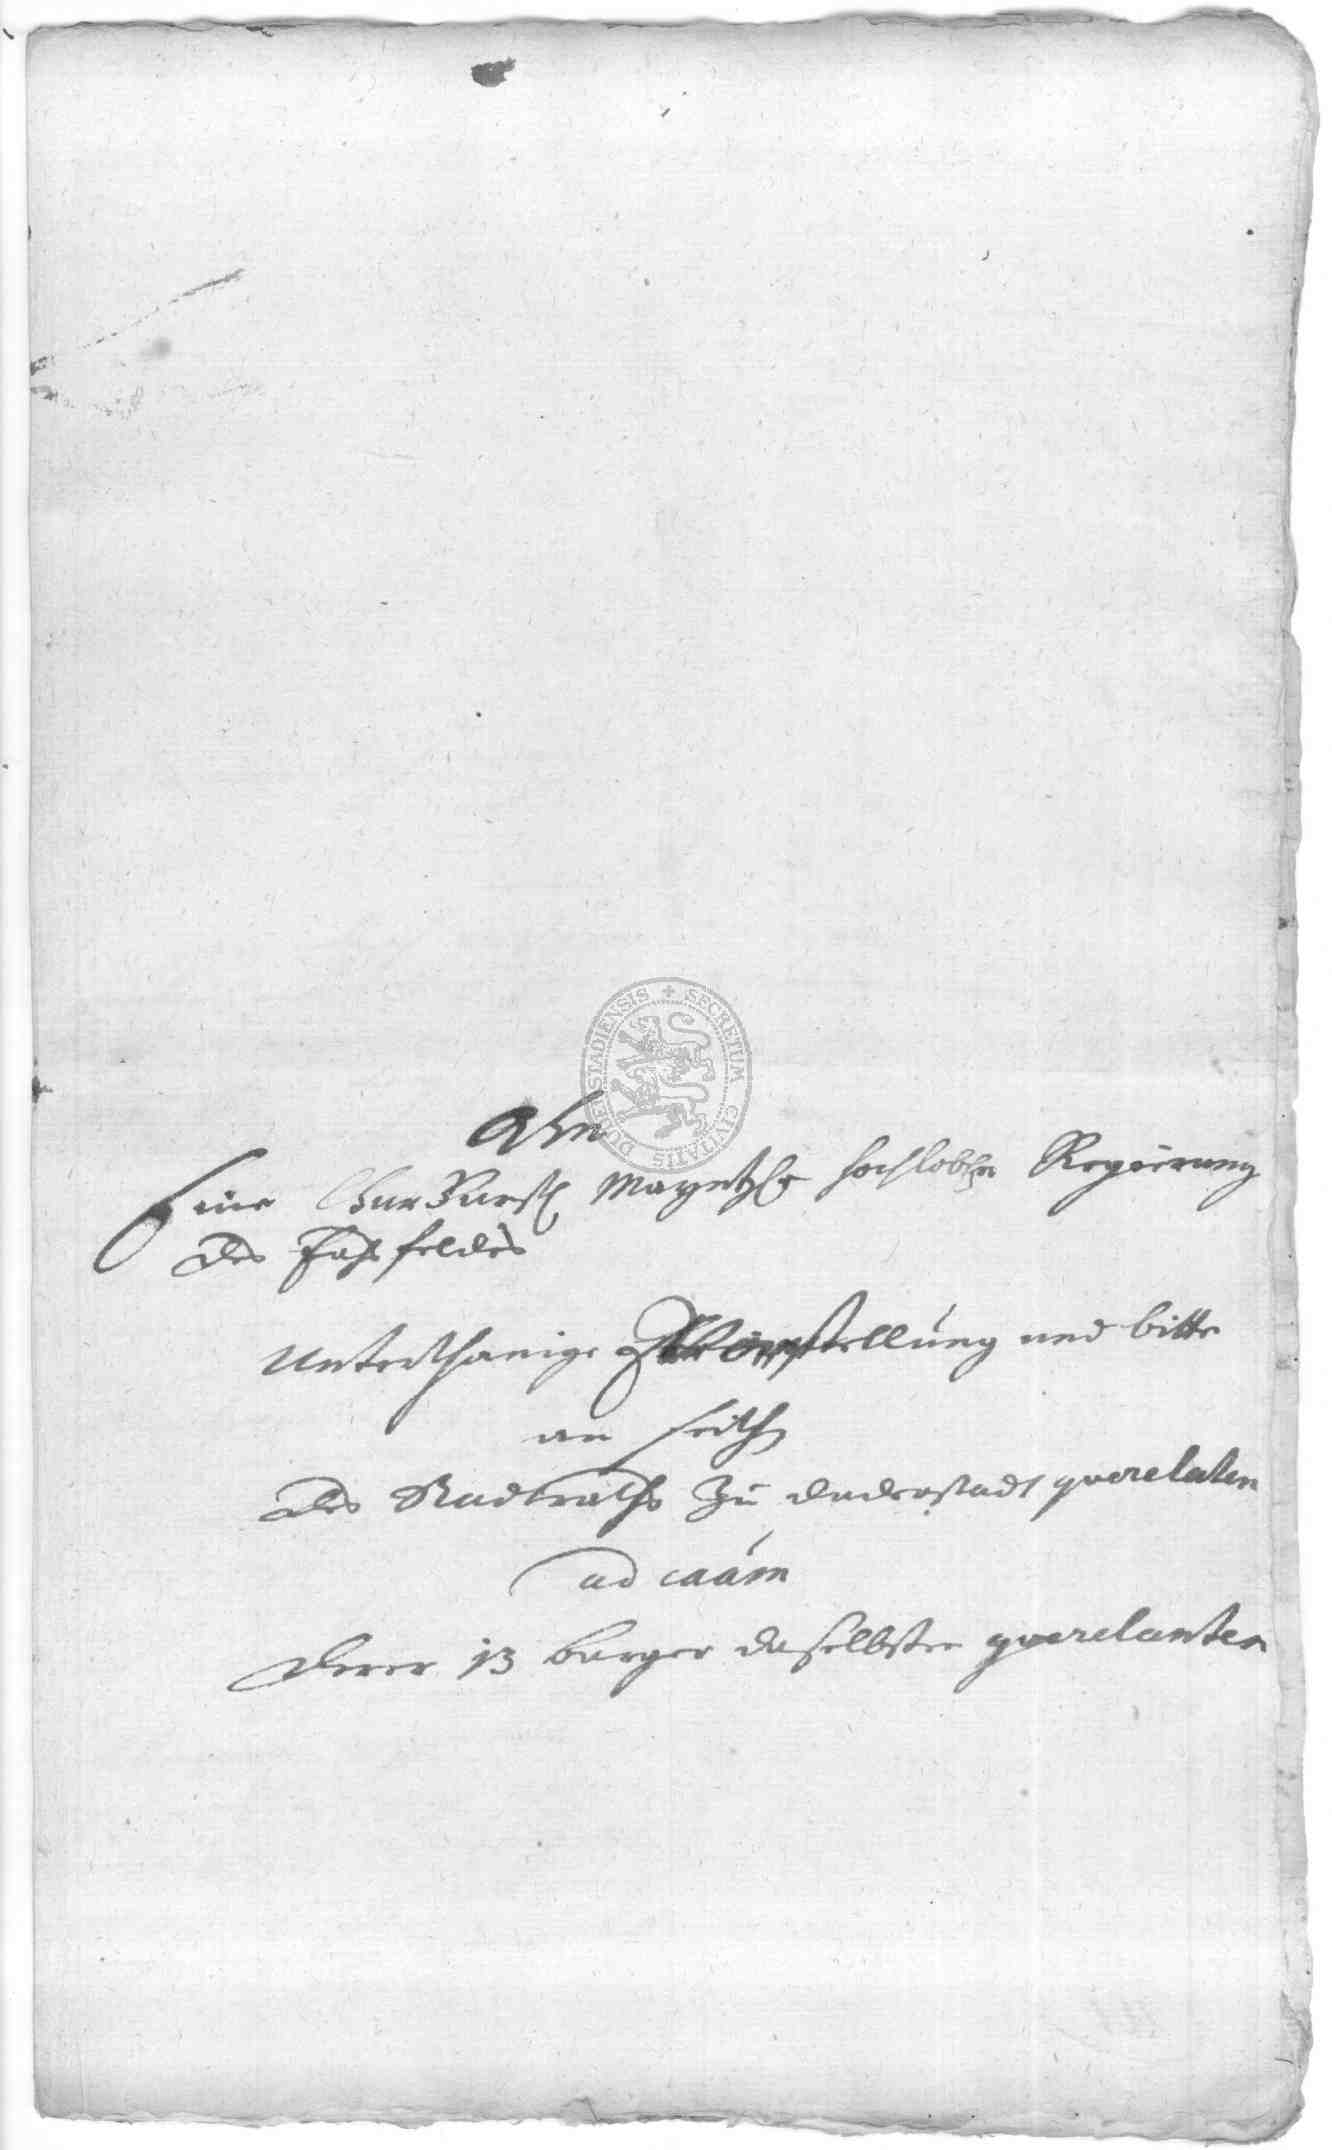 SECRETUM CIVITATIS DUDERSTADIENSIS
Ahn
Eine Churfürstl Mayntzl hochlobl Regierung
des Eichsfeldes
Unterthanige Vorstellung und bitte
an seithen
des Stadtraths zu duderstadt querelaten
ad caâm
derer 13 burger daselbsten querelanten